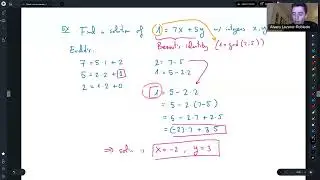 Ex Find a solution of 1 = 7x + 5y w/ integers x, y
Euclid:
Bezout's identity (1 = gcd(7,5))
7 = 5·1 + 2
5 = 2·2 + 1
2 = 1·2 + 0
2 = 7 - 5
1 = 5 - 2·2
1 = 5 - 2·2
= 5 - 2(7-5)
= 5 - 2·7 + 2·5
= (-2)·7 + 3·5
⇒ soln is x = -2, y = 3
Alvaro Lozano-Robledo